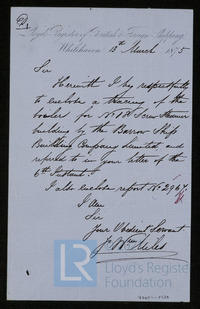 Lloyd's Register of British & Foreign Shipping
Whitehaven 13th March 1875
Sir
Herewith I beg respectfully
to enclose a tracing of the
boiler for No Screw Steamer
building by the Barrow Ship
Building Company Limited and
referred to in your letter of the
6th Instant.
I also enclose report No 2967.
I am
Sir
Your Obedient Servant
J Wm
Lloyd's Register
Foundation